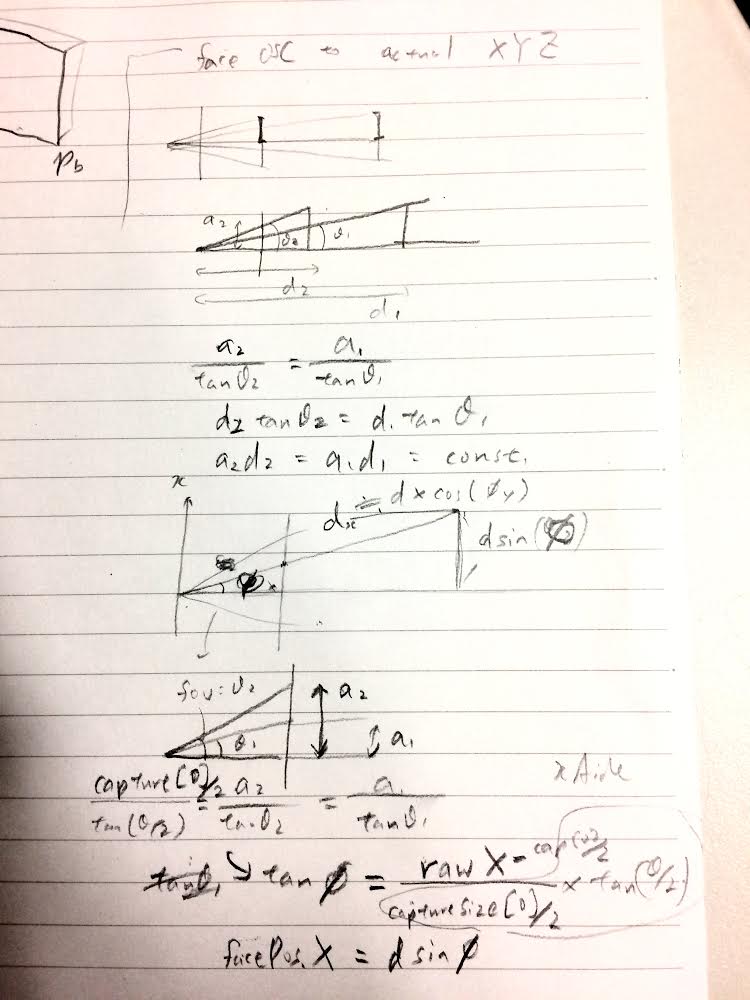 face OSC to actual XYZ
Pb
a2
θ2 θ1
d2
d1
a2/tanθ2 = a1/tanθ1
d2 tanθ2 = d1 tanθ1
a2d2 = a1d1 = const.
x
d x cos(φx)
d sin(φ)
fov: θ2
a2
θ1
a1
capture[0]/2 / tan(θ/2) = a2/tanθ2 = a1/tanθ1
tanθ1 tan φ = (raw X - cap[0]/2) / (capturesize[0]/2) x tan(θ/2)
facePos.X = d sin φ